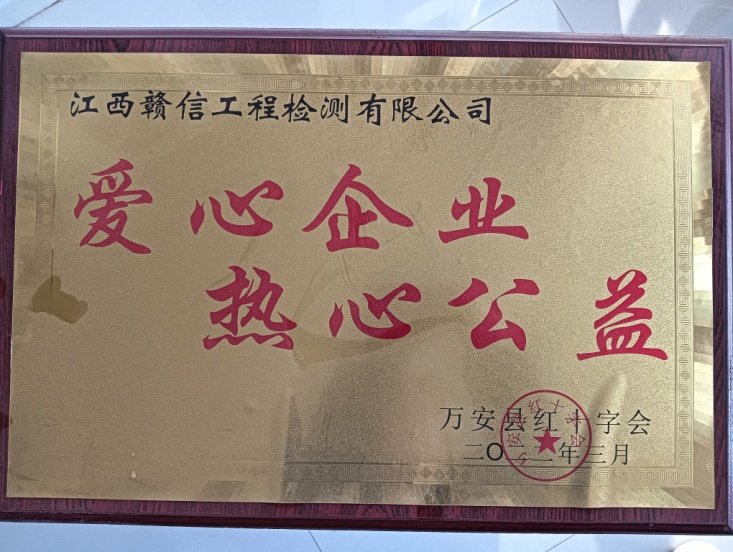 江西赣信工程检测有限公司
爱心企业
热心公益
万安县红十字会
二〇二二年三月